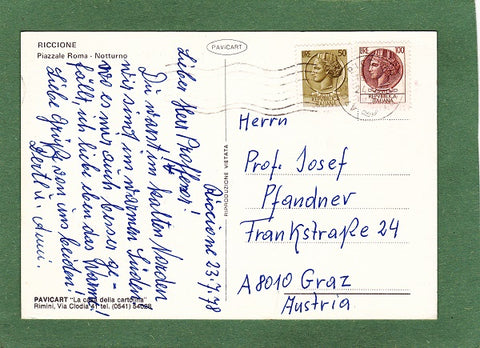 RICCIONE
Piazzale Roma - Notturno
PAVICART
Riccione 23.7.78
Lieber Herr Professor!
Du warst im kalten Norden
wir sind im warmen Süden
wo es mir auch besser ge-
fällt, ich liebe eben das Warme!
Liebe Grüße von uns beiden!
Bertl u.
PAVICART "La casa della cartolina"
Rimini, Via Clodia 41 tel. (0541) 54028
RIPRODUZIONE VIETATA
LIRE 50
REPUBBLICA
ITALIANA
LIRE 100
REPUBBLICA
ITALIANA
Herrn
Prof. Josef
Pfandner
Frankstraße 24
A 8010 Graz
Austria